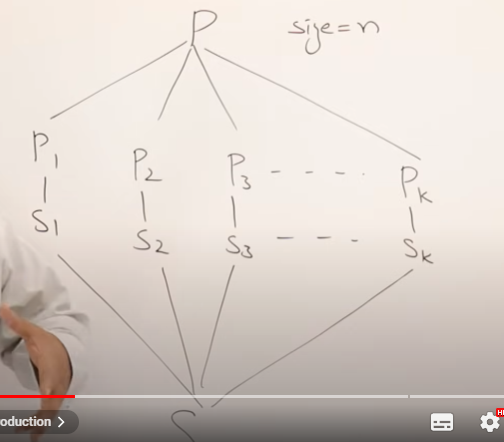 P size = n
P1 P2 P3 - - - - Pk
S1 S2 S3 - - - Sk
S
oduction >